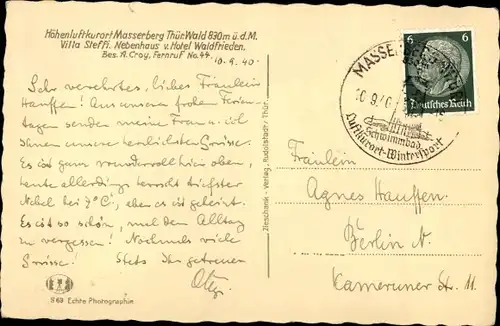 Höhenluftkurort Masserberg Thür. Wald 830 m ü.d.M.
Villa Steffi, Nebenhaus v. Hotel Waldfrieden.
Bes. A. Croy, Fernruf No. 44.
10.9.40.
Sehr verehrtes, liebes Fräulein
Hauffen! Aus unseren frohen Ferien-
tagen senden meine Frau u. ich
Ihnen unsere herzlichsten Grüsse.
Es ist ganz wundervoll hier oben,
heute allerdings herrscht dichtester
Nebel bei 7°C, aber es ist geheizt.
Es ist so schön, mal den Alltag
zu vergessen! Nochmals viele
Grüsse! Stets Ihr getreuer
S 69 Echte Photographie
Zieschank - Verlag, Rudolstadt / Thür.
MASSERBERG
10.9.40
Schwimmbad
Luftkurort-Wintersport
6 6
Deutsches Reich
Fräulein
Agnes Hauffen.
Berlin N.
Kameruner St. 11